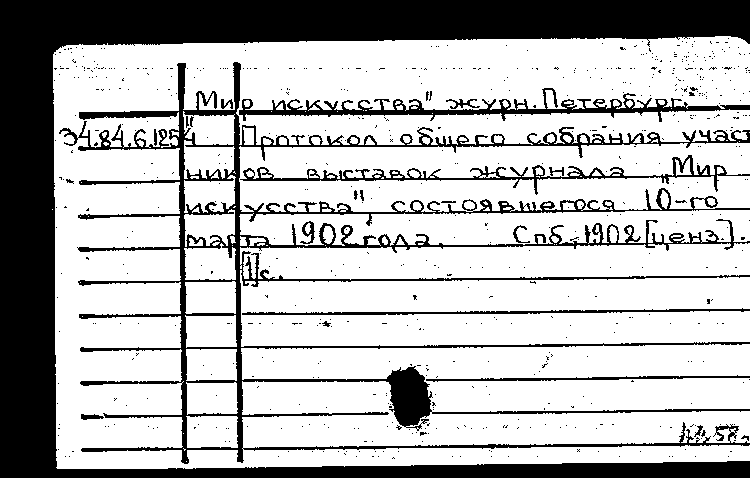 "Мир искусства", журн. Петербург.
Э4.84.6.1254 Протокол общего собрания участ
ников выставок журнала "Мир
искусства", состоявшегося 10-го
марта 1902 года. Спб., 1902 [ценз.].
[1] с.